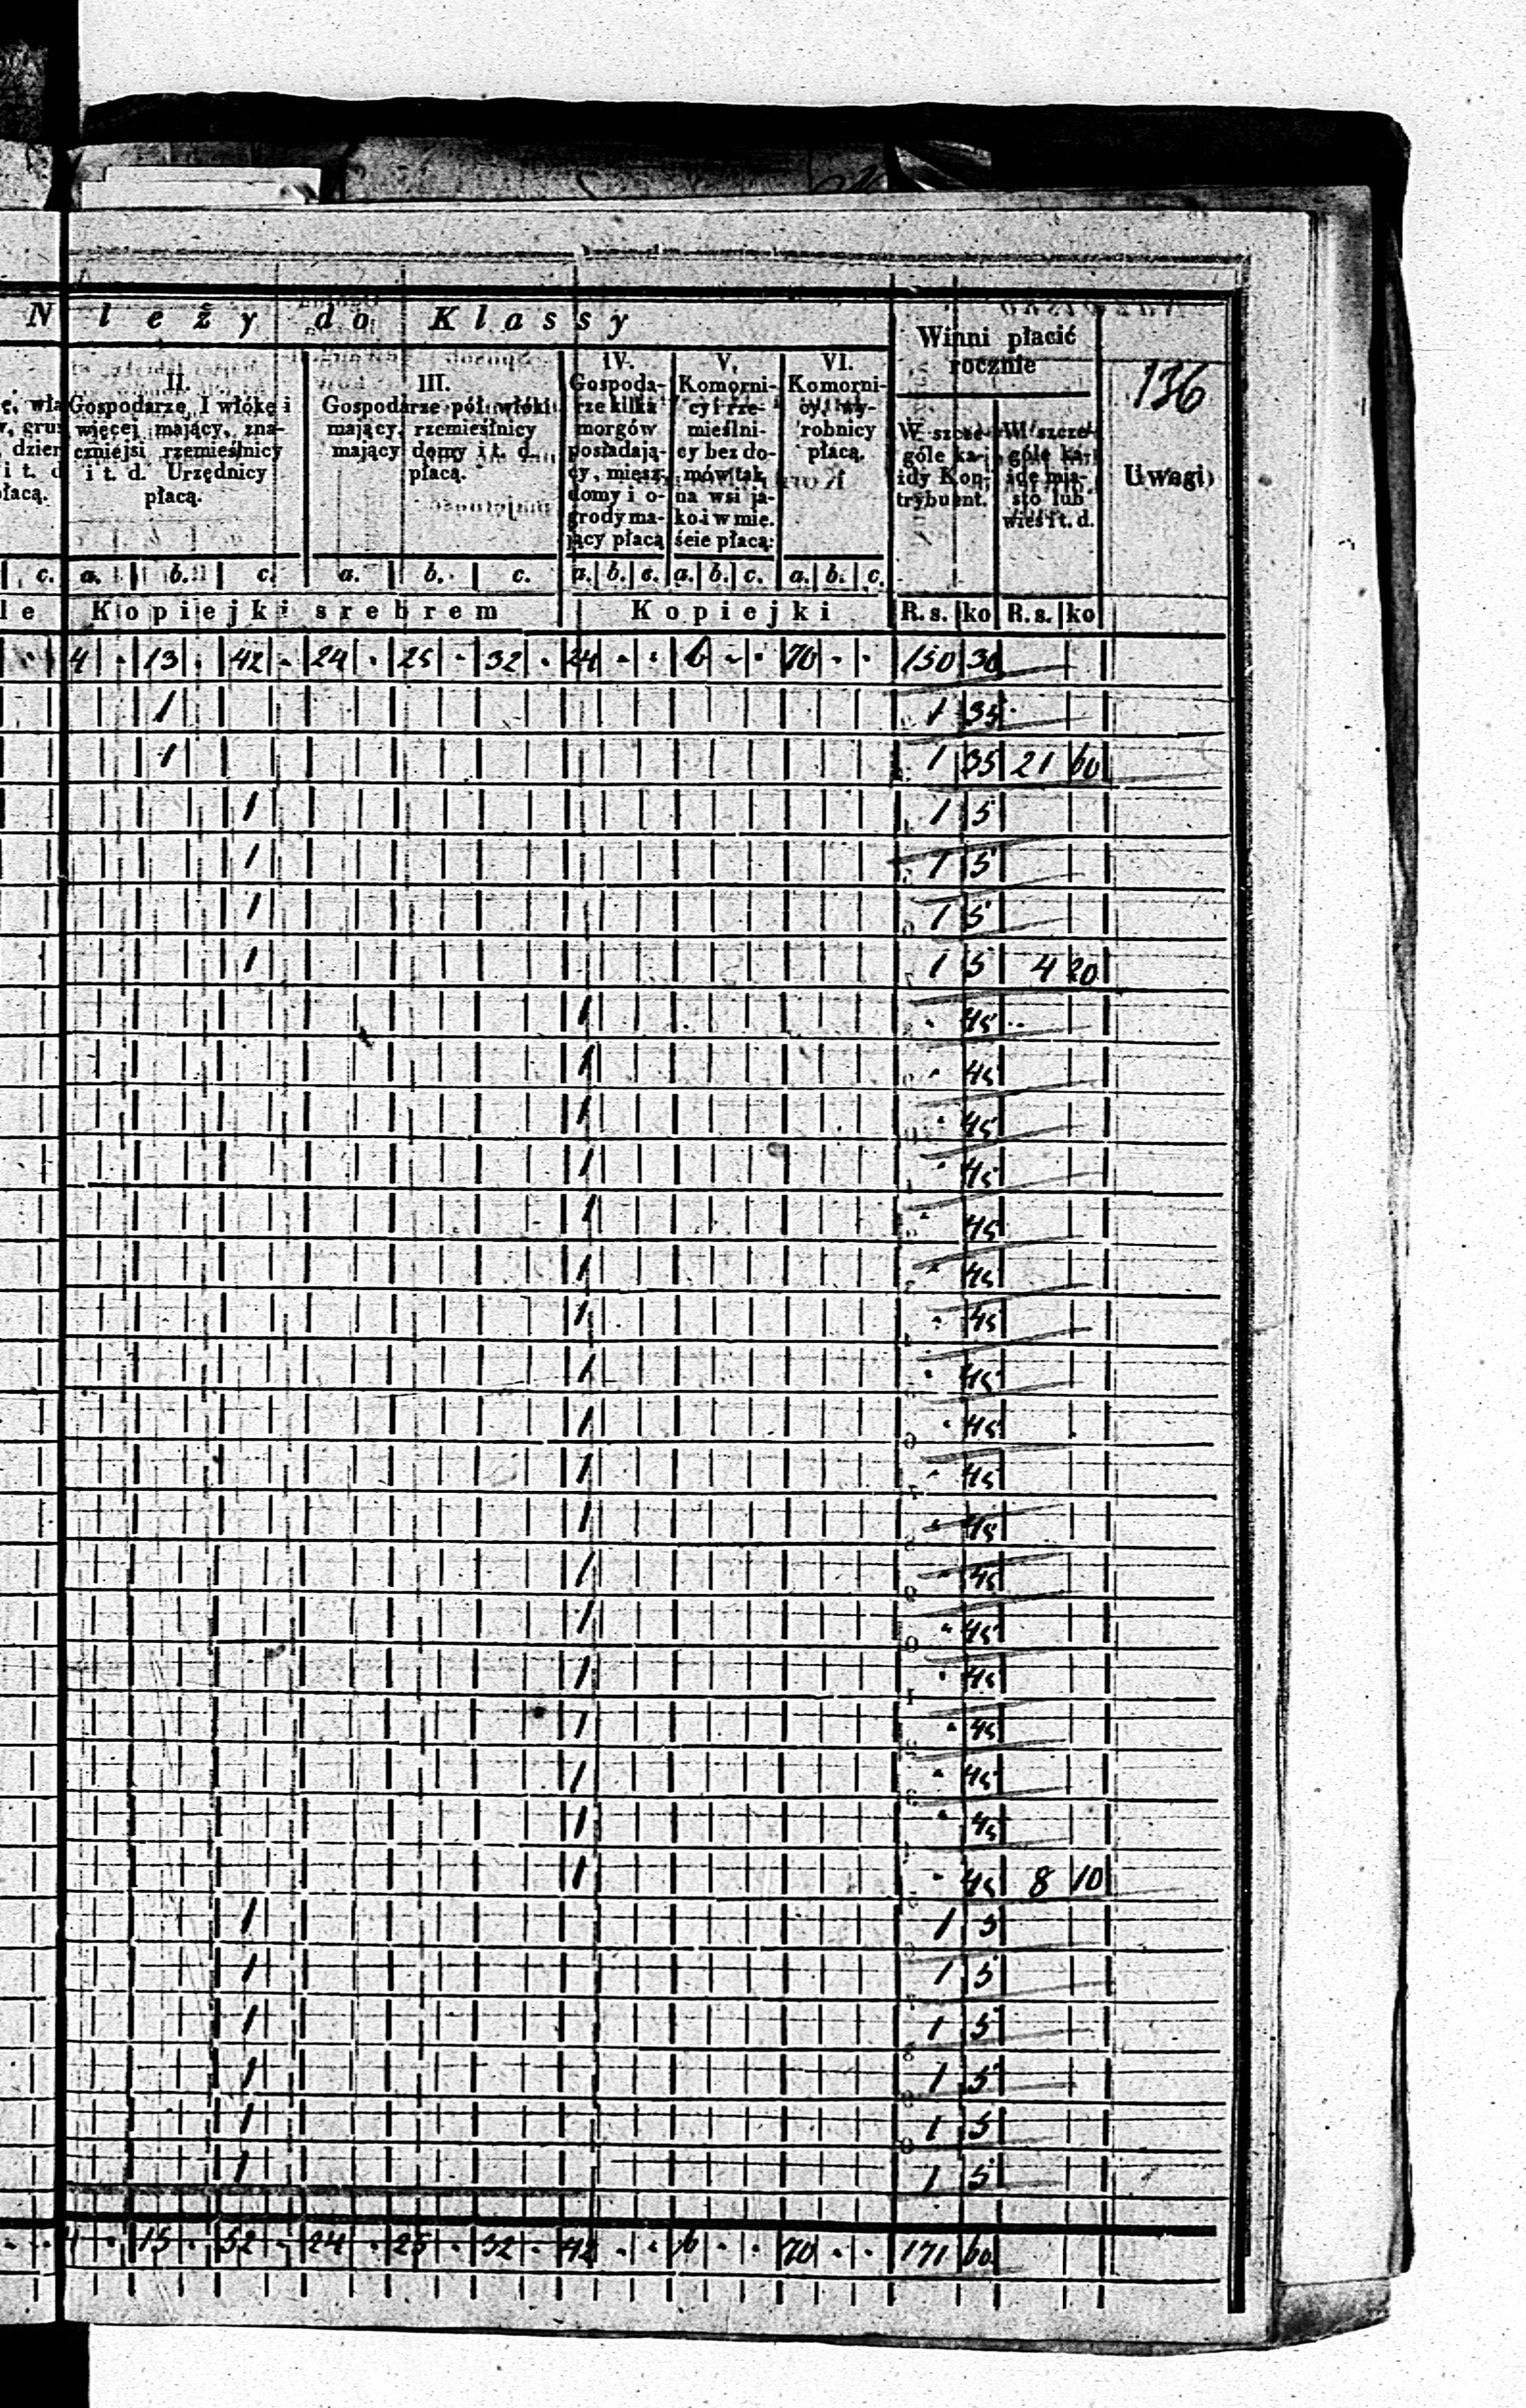 N leży do Klassy
Winni płacić
rocznie
136
Uwagi
c, wła
w, grun
dzier
i t. d
płacą.
II.
Gospodarze I włókę i
więcej mający, zna-
czniejsi rzemieślnicy
i t. d. Urzędnicy
płacą.
III.
Gospodarze pół włóki
mający rzemieślnicy
mający domy i t. d.
płacą.
IV.
Gospoda-
rze kilka
morgów
posiadają-
cy, miesz.
domy i o-
grody ma-
jący płacą
V.
Komorni-
cy i rze-
mieślni-
cy bez do-
mów tak
na wsi ja-
ko i w mie.
ście płacą:
VI.
Komorni-
cy, wy-
robnicy
płacą.
W szcze-
góle ka-
żdy Kon-
trybuent.
W szcze-
góle ka-
żde mia-
sto lub
wieś i t. d.
c. a. b. c. a. b. c. a. b. c. a. b. c. a. b. c.
le Kopiejki srebrem Kopiejki R. s. ko R. s. ko
4 . 13 . 42 . 24 . 25 . 32 . 24 . . 6 . . 70 . . 150 30
1 1 35
1 1 35 21 60
1 1 5
1 1 5
1 1 5
1 1 5 4 20
1 . 45
1 . 45
1 . 45
1 . 45
1 . 45
1 . 45
1 . 45
1 . 45
1 . 45
1 . 45
1 . 45
1 . 45
1 . 45
1 . 45
1 . 45
1 . 45
1 . 45
1 . 45 8 10
1 1 5
1 1 5
1 1 5
1 1 5
1 1 5
1 1 5
4 . 15 . 52 . 24 . 25 . 32 . 42 . . 6 . . 70 . . 171 60